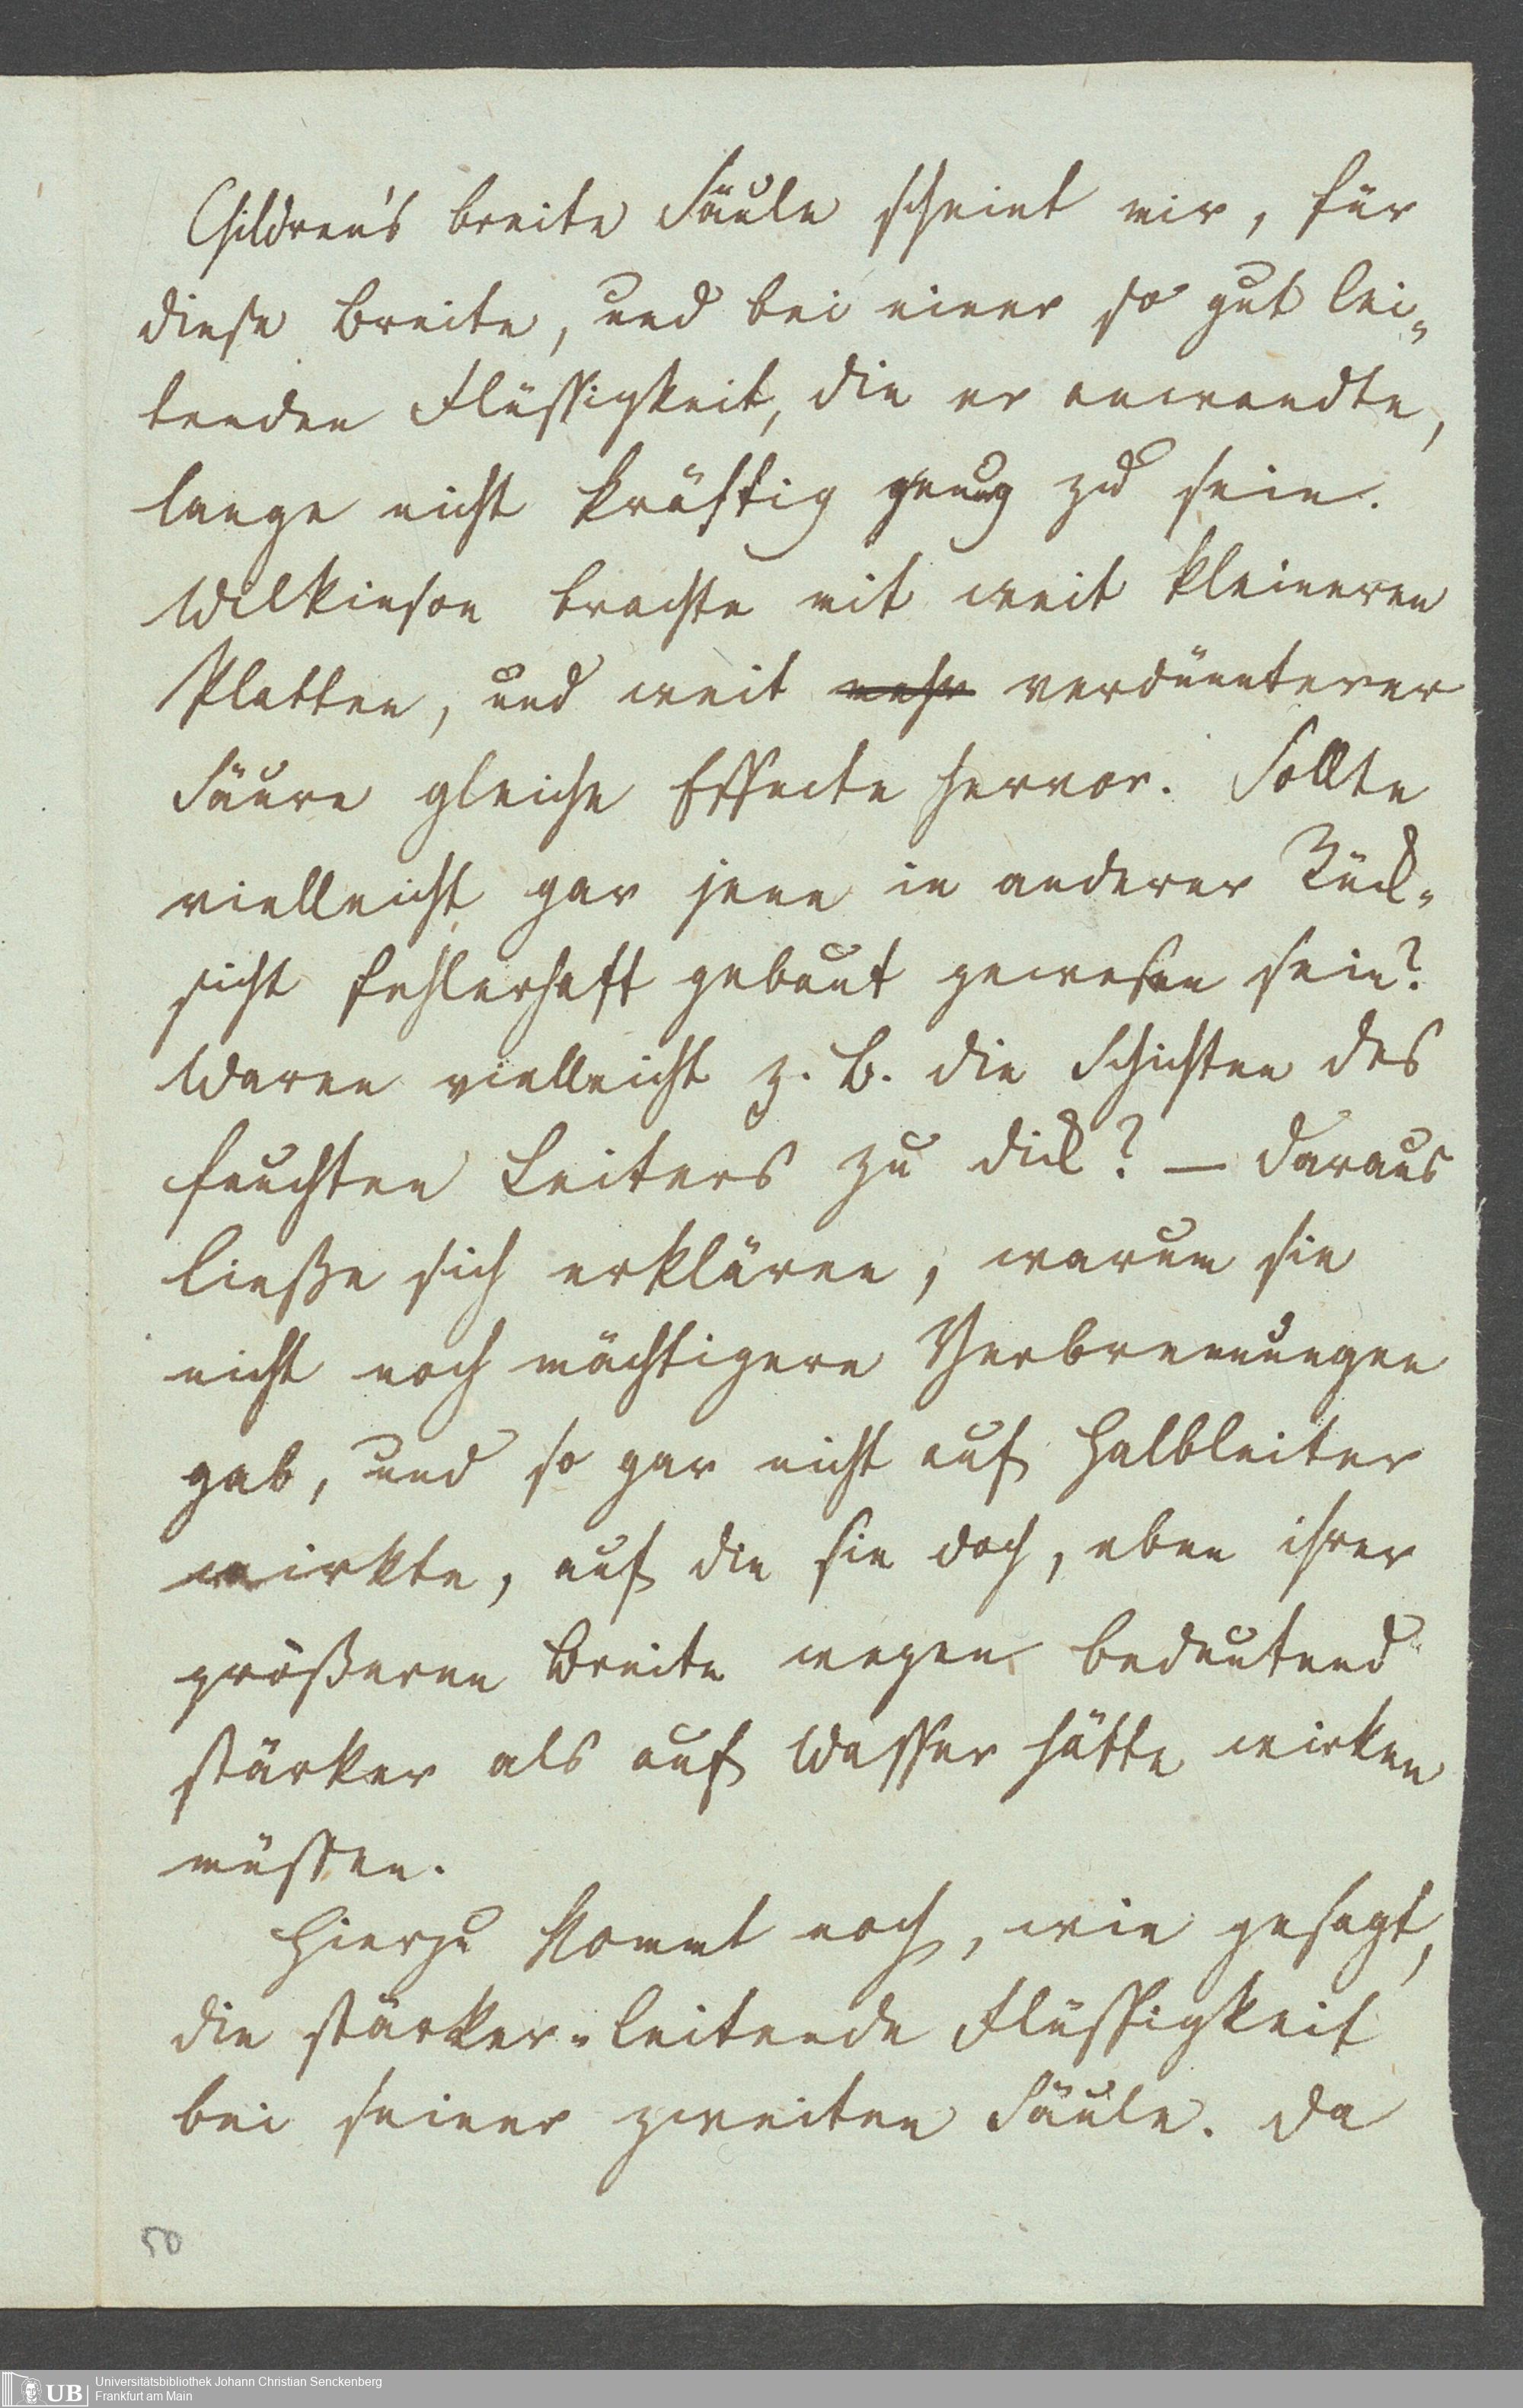 Children's breite Säule scheint mir, für
diese Breite, und bei einer so gut lei-
tenden Flüssigkeit, die er anwandte,
lange nicht kräftig genug zu sein.
Wilkinson brachte mit weit kleineren
Platten, und weit mehr verdünnterer
Säure gleiche Effecte hervor. Sollte
vielleicht gar jene in anderer Rück-
sicht fehlerhaft gebaut gewesen sein?
Waren vielleicht z. B. die Schichten des
feuchten Leiters zu dick? — Daraus
ließe sich erklären, warum sie
nicht noch mächtigere Verbrennungen
gab, und so gar nicht auf Halbleiter
wirkte, auf die sie doch, eben ihrer
größeren Breite wegen bedeutend
stärker als auf Wasser hätte wirken
müssen.
Hierzu kommt noch, wie gesagt,
die stärker-leitende Flüssigkeit
bei seiner zweiten Säule. Da
50
UB
Universitätsbibliothek Johann Christian Senckenberg
Frankfurt am Main